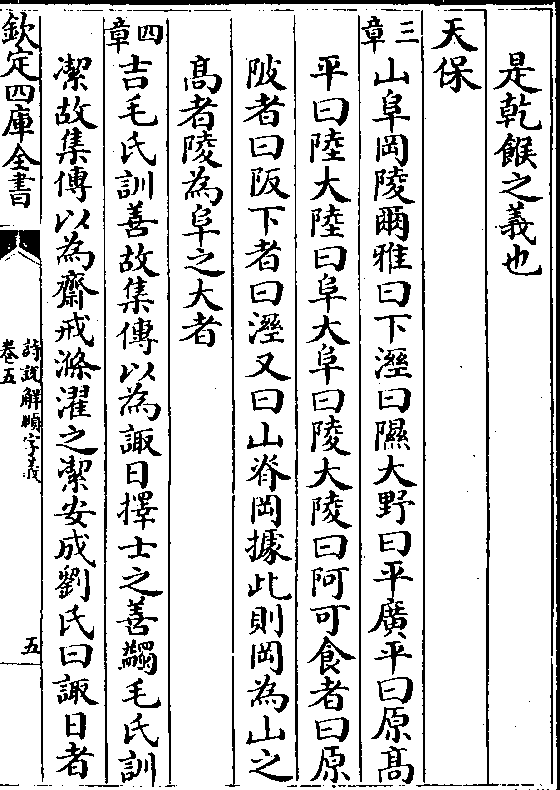 是乾餱之義也
天保
三章
山阜岡陵爾雅曰下溼曰隰大野曰平廣平曰原髙
平曰陸大陸曰阜大阜曰陵大陵曰阿可食者曰原
陂者曰阪下者曰溼又曰山脊岡據此則岡為山之
髙者陵為阜之大者
四章
吉毛氏訓善故集傳以為諏日擇士之善蠲毛氏訓
潔故集傳以為齋戒滌濯之潔安成劉氏曰諏日者
欽定四庫全書
詩說解頤字義
卷五
五